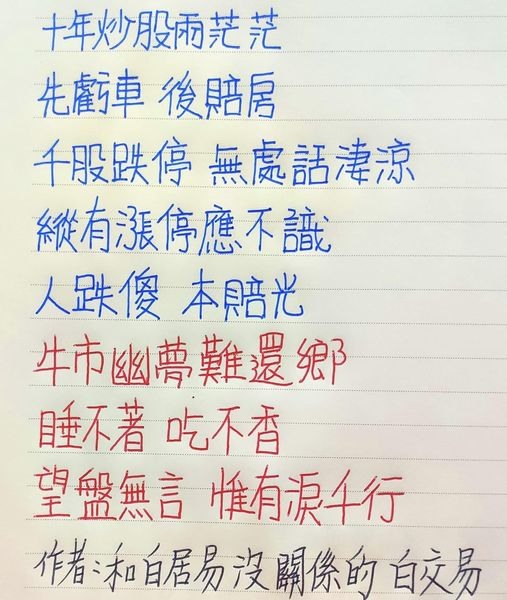 十年炒股兩茫茫
先虧車 後賠房
千股跌停 無處話淒涼
縱有漲停應不識
人跌傻 本賠光
牛市幽夢難還鄉
睡不著 吃不香
望盤無言 惟有淚千行
作者:和白居易沒關係的 白交易